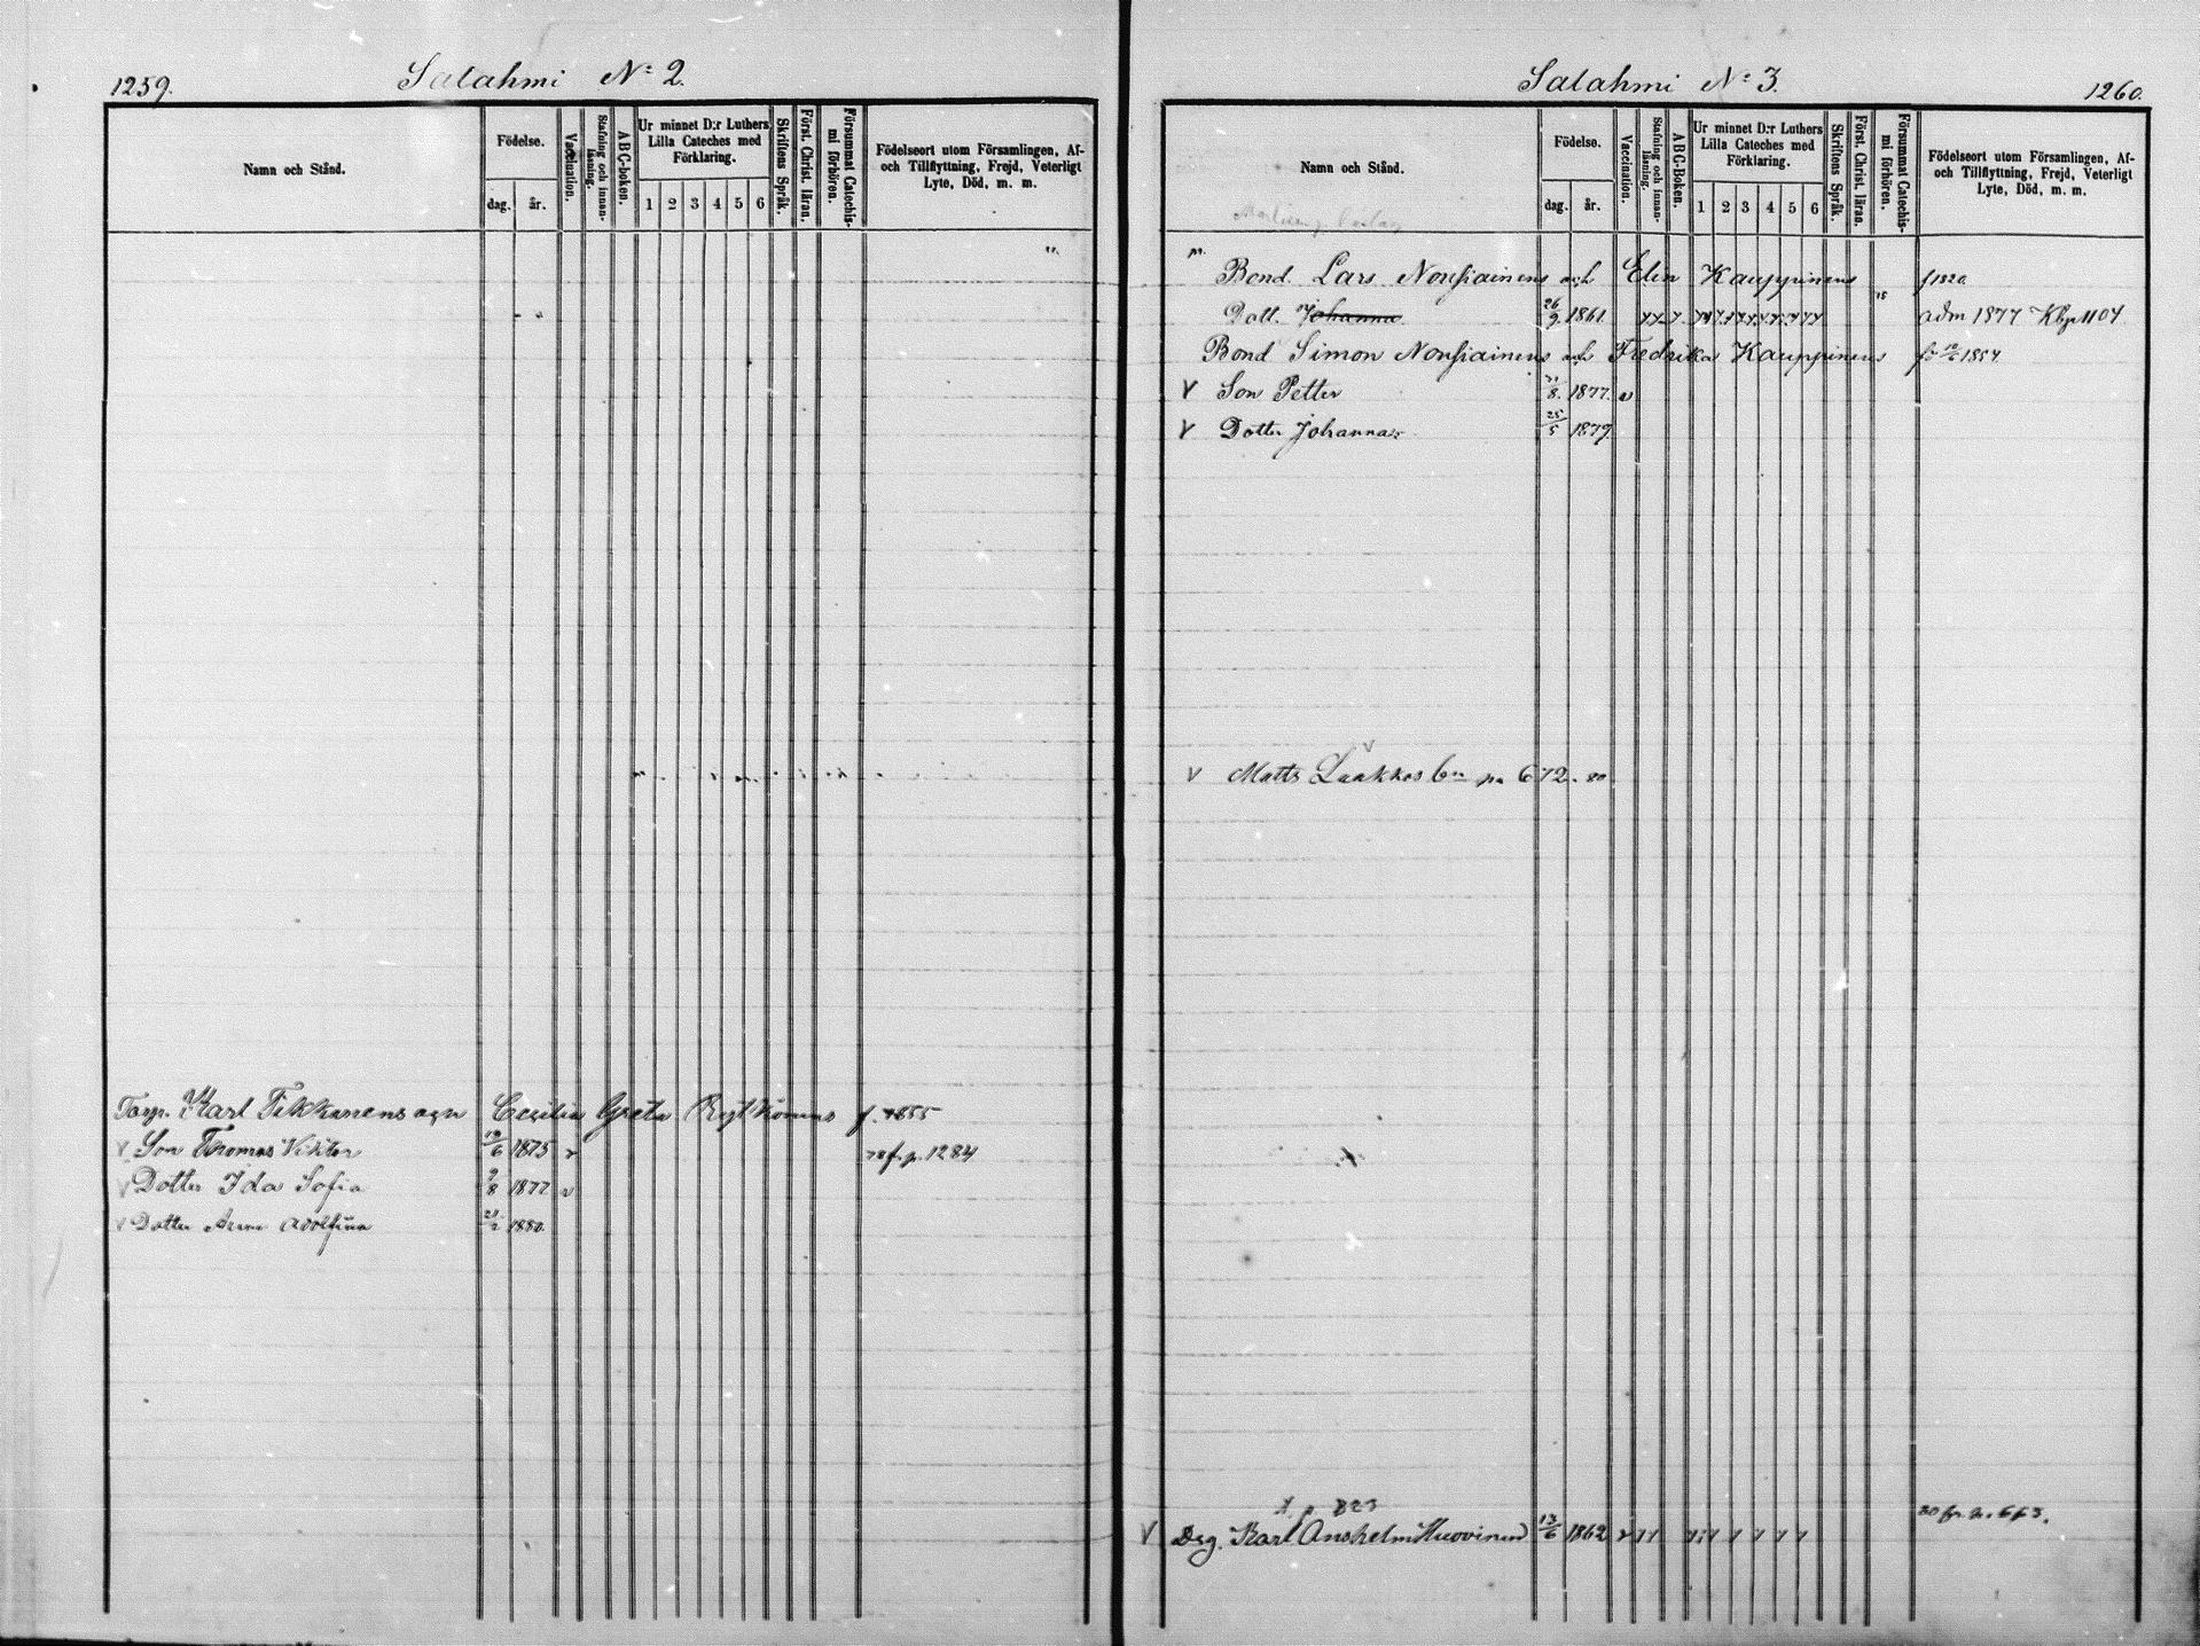 1259.
Salahmi No 2.
Namn och Stånd.
Födelse.
dag.
år.
Vaccination.
Stafning och innan-läsning.
ABC-boken.
Ur minnet D:r Luthers
Lilla Cateches med
Förklaring.
1 2 3 4 5 6
Skriftens Språk.
Först. Christ. läran.
Försummat Catechis-mi förhören.
Födelseort utom Församlingen, Af-
och Tillflyttning, Frejd, Veterligt
Lyte, Död, m. m.
Torp. Karl Tikkanens o Cecilia Greta f. 1855
v Son Thomas Viktor 19/6 1875 v 78 f. p. 1284
v Dotter Ida Sofia 9/8 1877 v
v Dotter Anna Adolfina 21/2 1880.
Salahmi No 3.
1260.
Namn och Stånd.
Födelse.
dag.
år.
Vaccination.
Stafning och innan-läsning.
ABC-Boken.
Ur minnet D:r Luthers
Lilla Cateches med
Förklaring.
1 2 3 4 5 6
Skriftens Språk.
Först. Christ. läran.
Försummat Catechis-mi förhören.
Födelseort utom Församlingen, Af-
och Tillflyttning, Frejd, Veterligt
Lyte, Död, m. m.
Bond. Lars Nousiainens och Elin Kauppinens f 1820
Dott. Johanna 26/9 1861. adm 1877 Kbp 1104
Bond Simon Nousiainens och Fredrika Kauppinens 1854
v Son Petter 31/8. 1877. v
v Dotter Johanna 25/5 1879
v Matts Laakkos pa 672. 80
p 823
v Drg. Karl Anshelm Huovinen 13/6 1862 80 fr. p. 663.